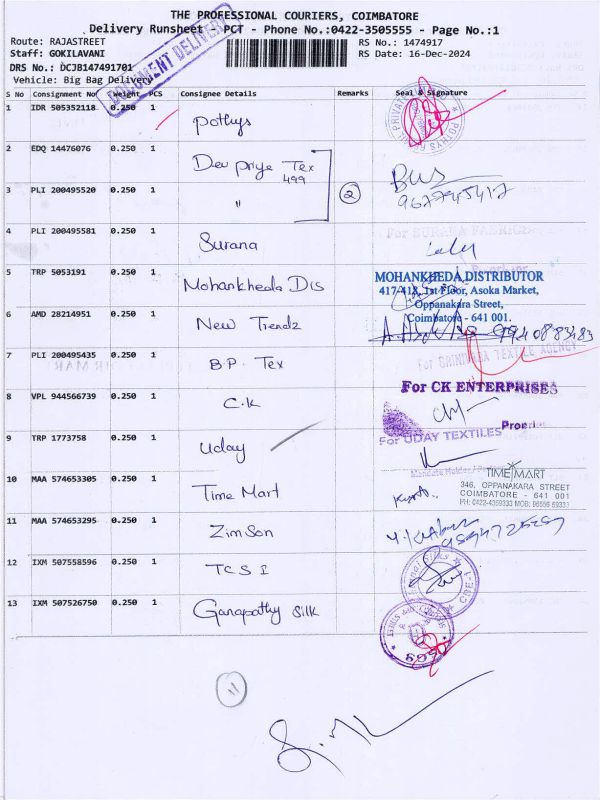 THE PROFESSIONAL COURIERS, COIMBATORE
Delivery Runsheet - PCT - Phone No.:0422-3505555 - Page No.:1
Route: RAJASTREET
RS No.: 1474917
Staff: GOKILAVANI
RS Date: 16-Dec-2024
DRS No.: DCJB147491701
Vehicle: Big Bag Delivery
DOCUMENT DELIVERY
S No Consignment No Weight PCS Consignee Details Remarks Seal & Signature
1 IDR 505352118 0.250 1 Pothys
2 EDQ 14476076 0.250 1 Dev priya Tex
499
3 PLI 200495520 0.250 1 "
2
4 PLI 200495581 0.250 1 Surana
5 TRP 5053191 0.250 1 Mohankheda Dis
MOHANKHEDA DISTRIBUTOR
417-418, 1st Floor, Asoka Market,
Oppanakara Street,
Coimbatore - 641 001.
6 AMD 28214951 0.250 1 New Trendz
7 PLI 200495435 0.250 1 B.P. Tex
For SRINIVASA TEXTILE AGENCY
8 VPL 944566739 0.250 1 C.K
For CK ENTERPRISES
9 TRP 1773758 0.250 1 Uday
For UDAY TEXTILES
10 MAA 574653305 0.250 1 Time Mart
TIME MART
346, OPPANAKARA STREET
COIMBATORE - 641 001
PH: 0422-4359333 MOB: 96556 59333
11 MAA 574653295 0.250 1 ZimSon
12 IXM 507558596 0.250 1 TCS I
13 IXM 507526750 0.250 1 Ganapathy Silk
11